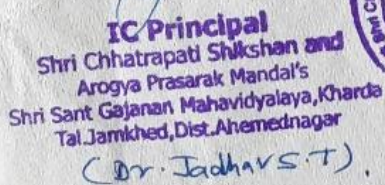 IC Principal
Shri Chhatrapati Shikshan and
Arogya Prasarak Mandal's
Shri Sant Gajanan Mahavidyalaya,Kharda
Tal.Jamkhed,Dist.Ahemednagar
(Dr. Jadhav S.T)